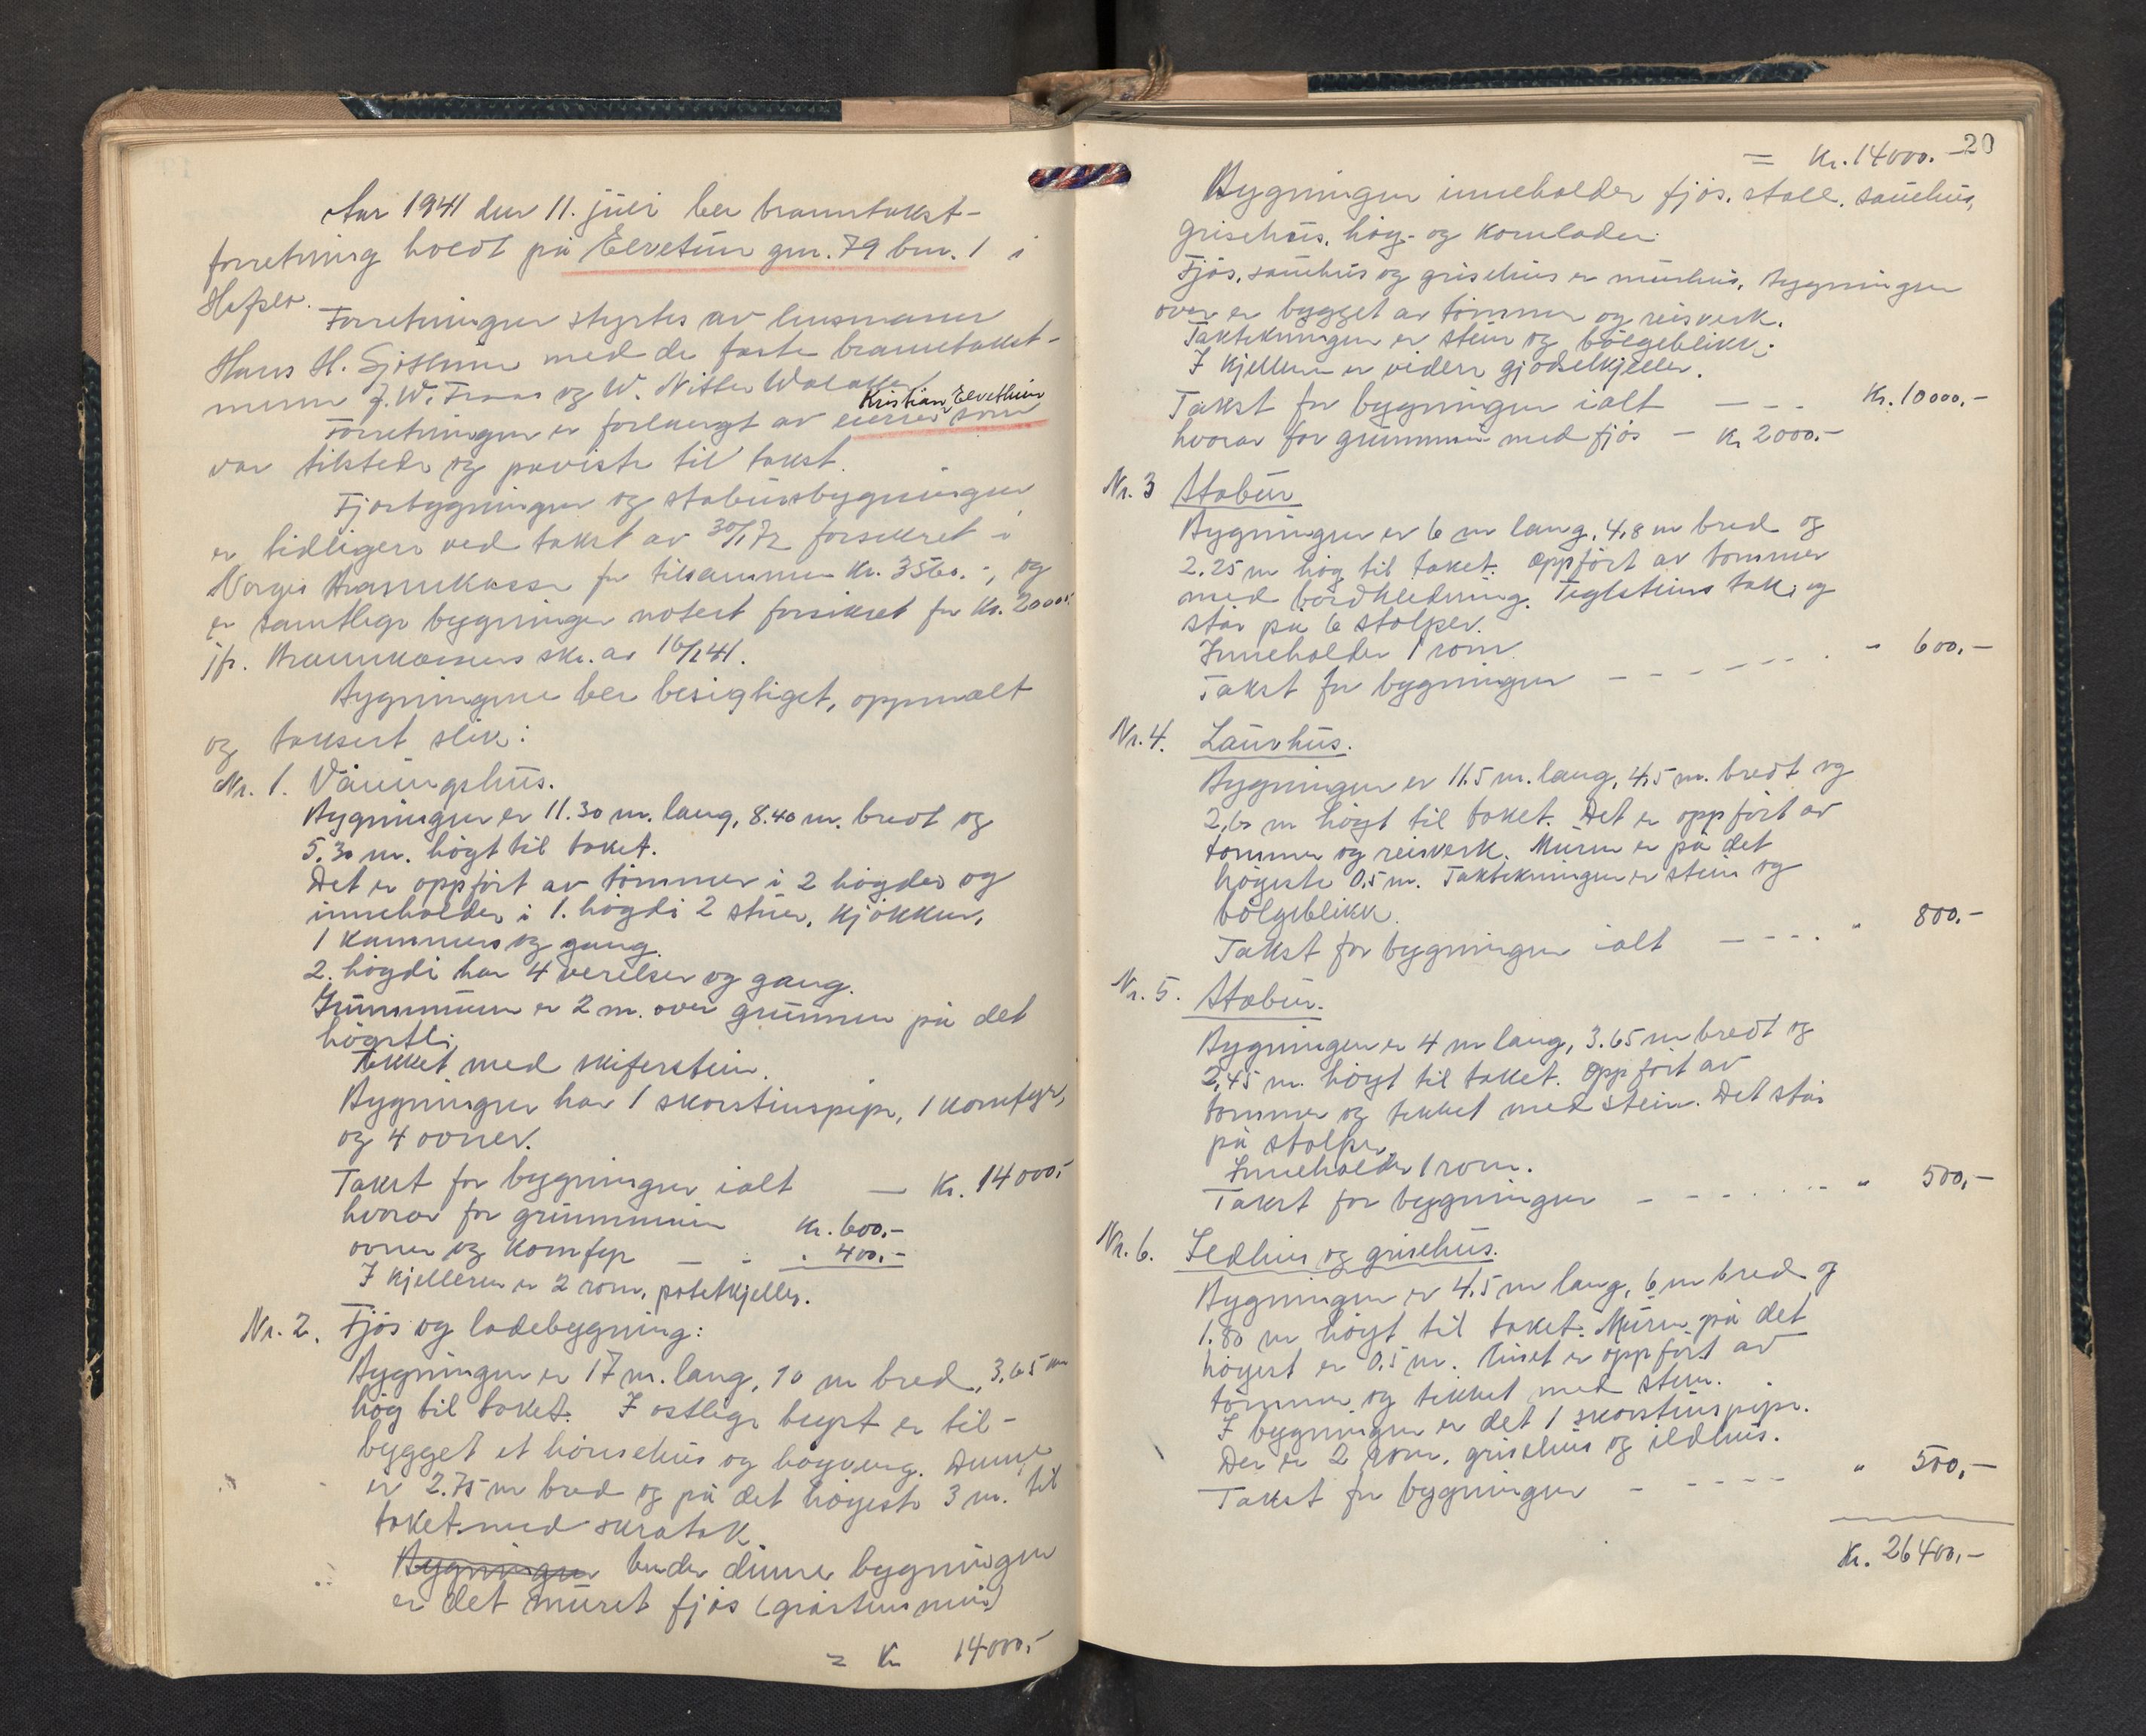 Aar 1941 den 11. juli ble branntakst-
forretning holdt på Elvetun gnr. 79 bnr. 1 i
Hafslo.
Forretningen styrtes av lensmann
Hans H. Sjøthun med de faste branntakst-
menn J. W. og W. Nitter Walaker
Kristian Elvethun
Forretningen er forlangt av eieren som
var tilstede og paviste til takst.
Fjøsbygningen og stabursbygningen
er tidligere ved takst av 30/1 72 forsikret i
Norges Brannkasse for tilsammen Kr. 3560.-, og
er samtlige bygninger notert forsikret for Kr. 20000.-
jfr. Brannkassens skr. av 16/1 41.
Bygningene ble besigtiget, oppmålt
og taksert slik:
Nr. 1. Våningshus.
Bygningen er 11.30 m. lang, 8.40 m. bredt og
5.30 m. högt til taket.
Det er oppfört av tömmer i 2 högder og
inneholder i 1. högdi 2 stuer, kjökken,
1 kammers og gang.
2. högdi har 4 værelser og gang.
Grunnmuren er 2 m. over grunnen på det
högste.
Tekket med skiferstein.
Bygningen har 1 skorstinspipe, 1 komfyr,
og 4 ovner.
Takst for bygningen ialt — Kr. 14000.-
hvorav for grunnmuren Kr. 600.-
ovner og komfyr — - . 400.-
I kjelleren er 2 rom, potetkjeller.
Nr. 2. Fjös og ladebygning:
Bygningen er 17 m. lang, 10 m bred, 3.65 m
hög til taket. I östlige begst er til-
bygget et hönsehus og höyveng. Denne
er 2.75 m bred og på det högeste 3 m. til
taket med skratak.
Bygningen Under denne bygningen
er det muret fjös (gråsteins mur)
= Kr 14000.-
20
= Kr. 14000.-
Bygningen inneholder fjös, stall, sauehus,
grisehus, höy- og kornlader.
Fjös, sauehus og grisehus er murhus, bygningen
over er bygget av tömmer og reisverk.
Taktekningen er stein og bölgeblikk.
I kjelleren er videre gjödselkjeller.
Takst for bygningen ialt — - - Kr. 10000.-
hvorav for grunnmur med fjös - Kr 2000.-
Nr. 3 Stabur
Bygningen er 6 m lang, 4,8 m bred og
2.25 m hög til taket. Oppfört av tömmer
med bordkledning. Teglsteins tak og
står på 6 stolper.
Inneholder 1 rom.
Takst for bygningen - - - - - - - " 600.-
Nr. 4. Lauvhus.
Bygningen er 11.5 m. lang, 4,5 m. bredt og
2,60 m högt til taket. Det er oppfört av
tömmer og reisverk. Muren er på det
högeste 0.5 m. Taktekningen er stein og
bölgeblikk.
Takst for bygningen ialt - - - - " 800.-
Nr. 5. Stabur.
Bygningen er 4 m lang, 3.65 m bredt og
2,45 m. högt til taket. Oppfört av
tömmer og tekket med stein. Det står
på stolper.
Inneholder 1 rom.
Takst for bygningen - - - - - - - " 500.-
Nr. 6. Eldhus og grisehus.
Bygningen er 4.5 m lang, 6 m bred og
1.80 m högt til taket. Muren på det
högest er 0.5 m. Huset er oppfört av
tömmer og tekket med stein.
I bygningen er det 1 skorstinspipe.
Der er 2 rom, grisehus og ildhus.
Takst for bygningen - - - - - " 500.-
Kr. 26400.-